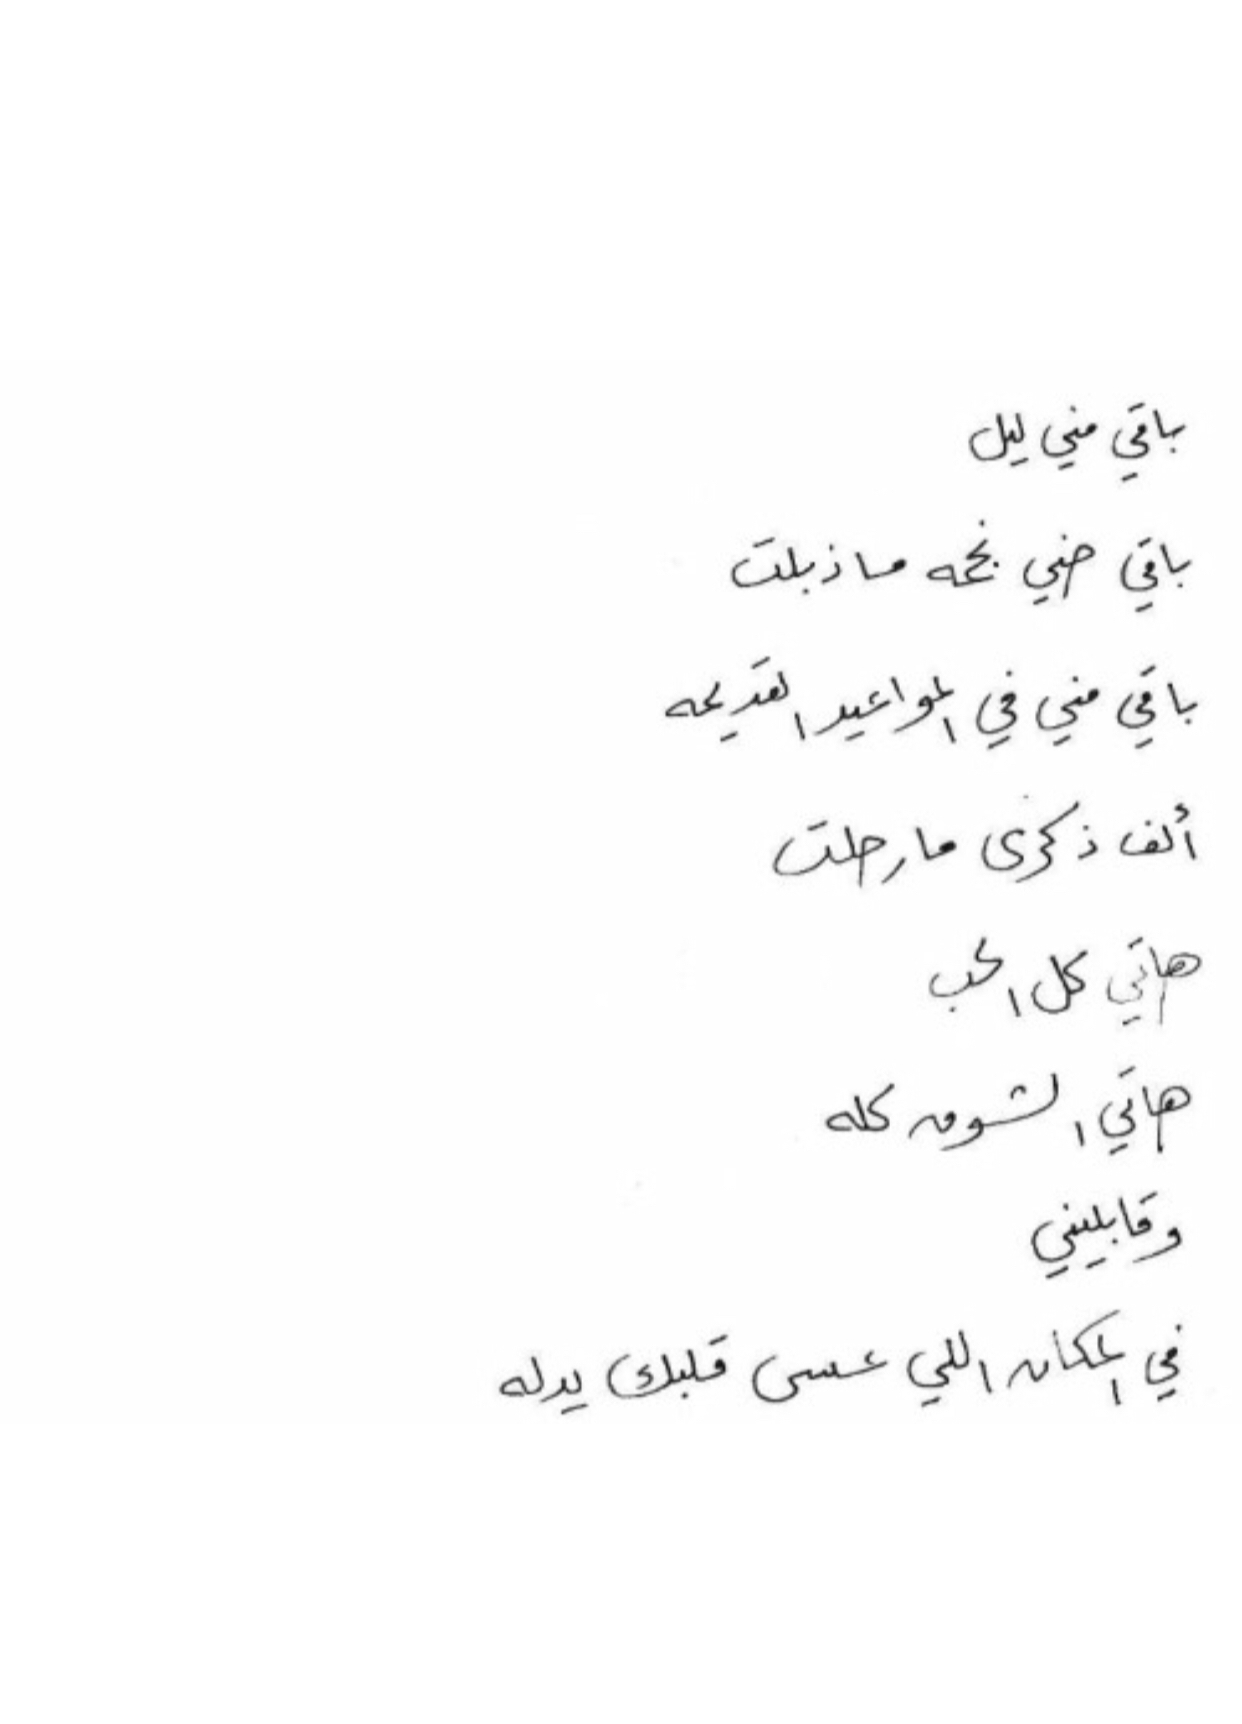 باقي مني ليل
باقي مني نجمه ما ذبلت
باقي مني في المواعيد القديمه
ألف ذكرى ما رحلت
هاتي كل الحب
هاتي الشوق كله
وقابليني
في المكان اللي عسى قلبك يدله